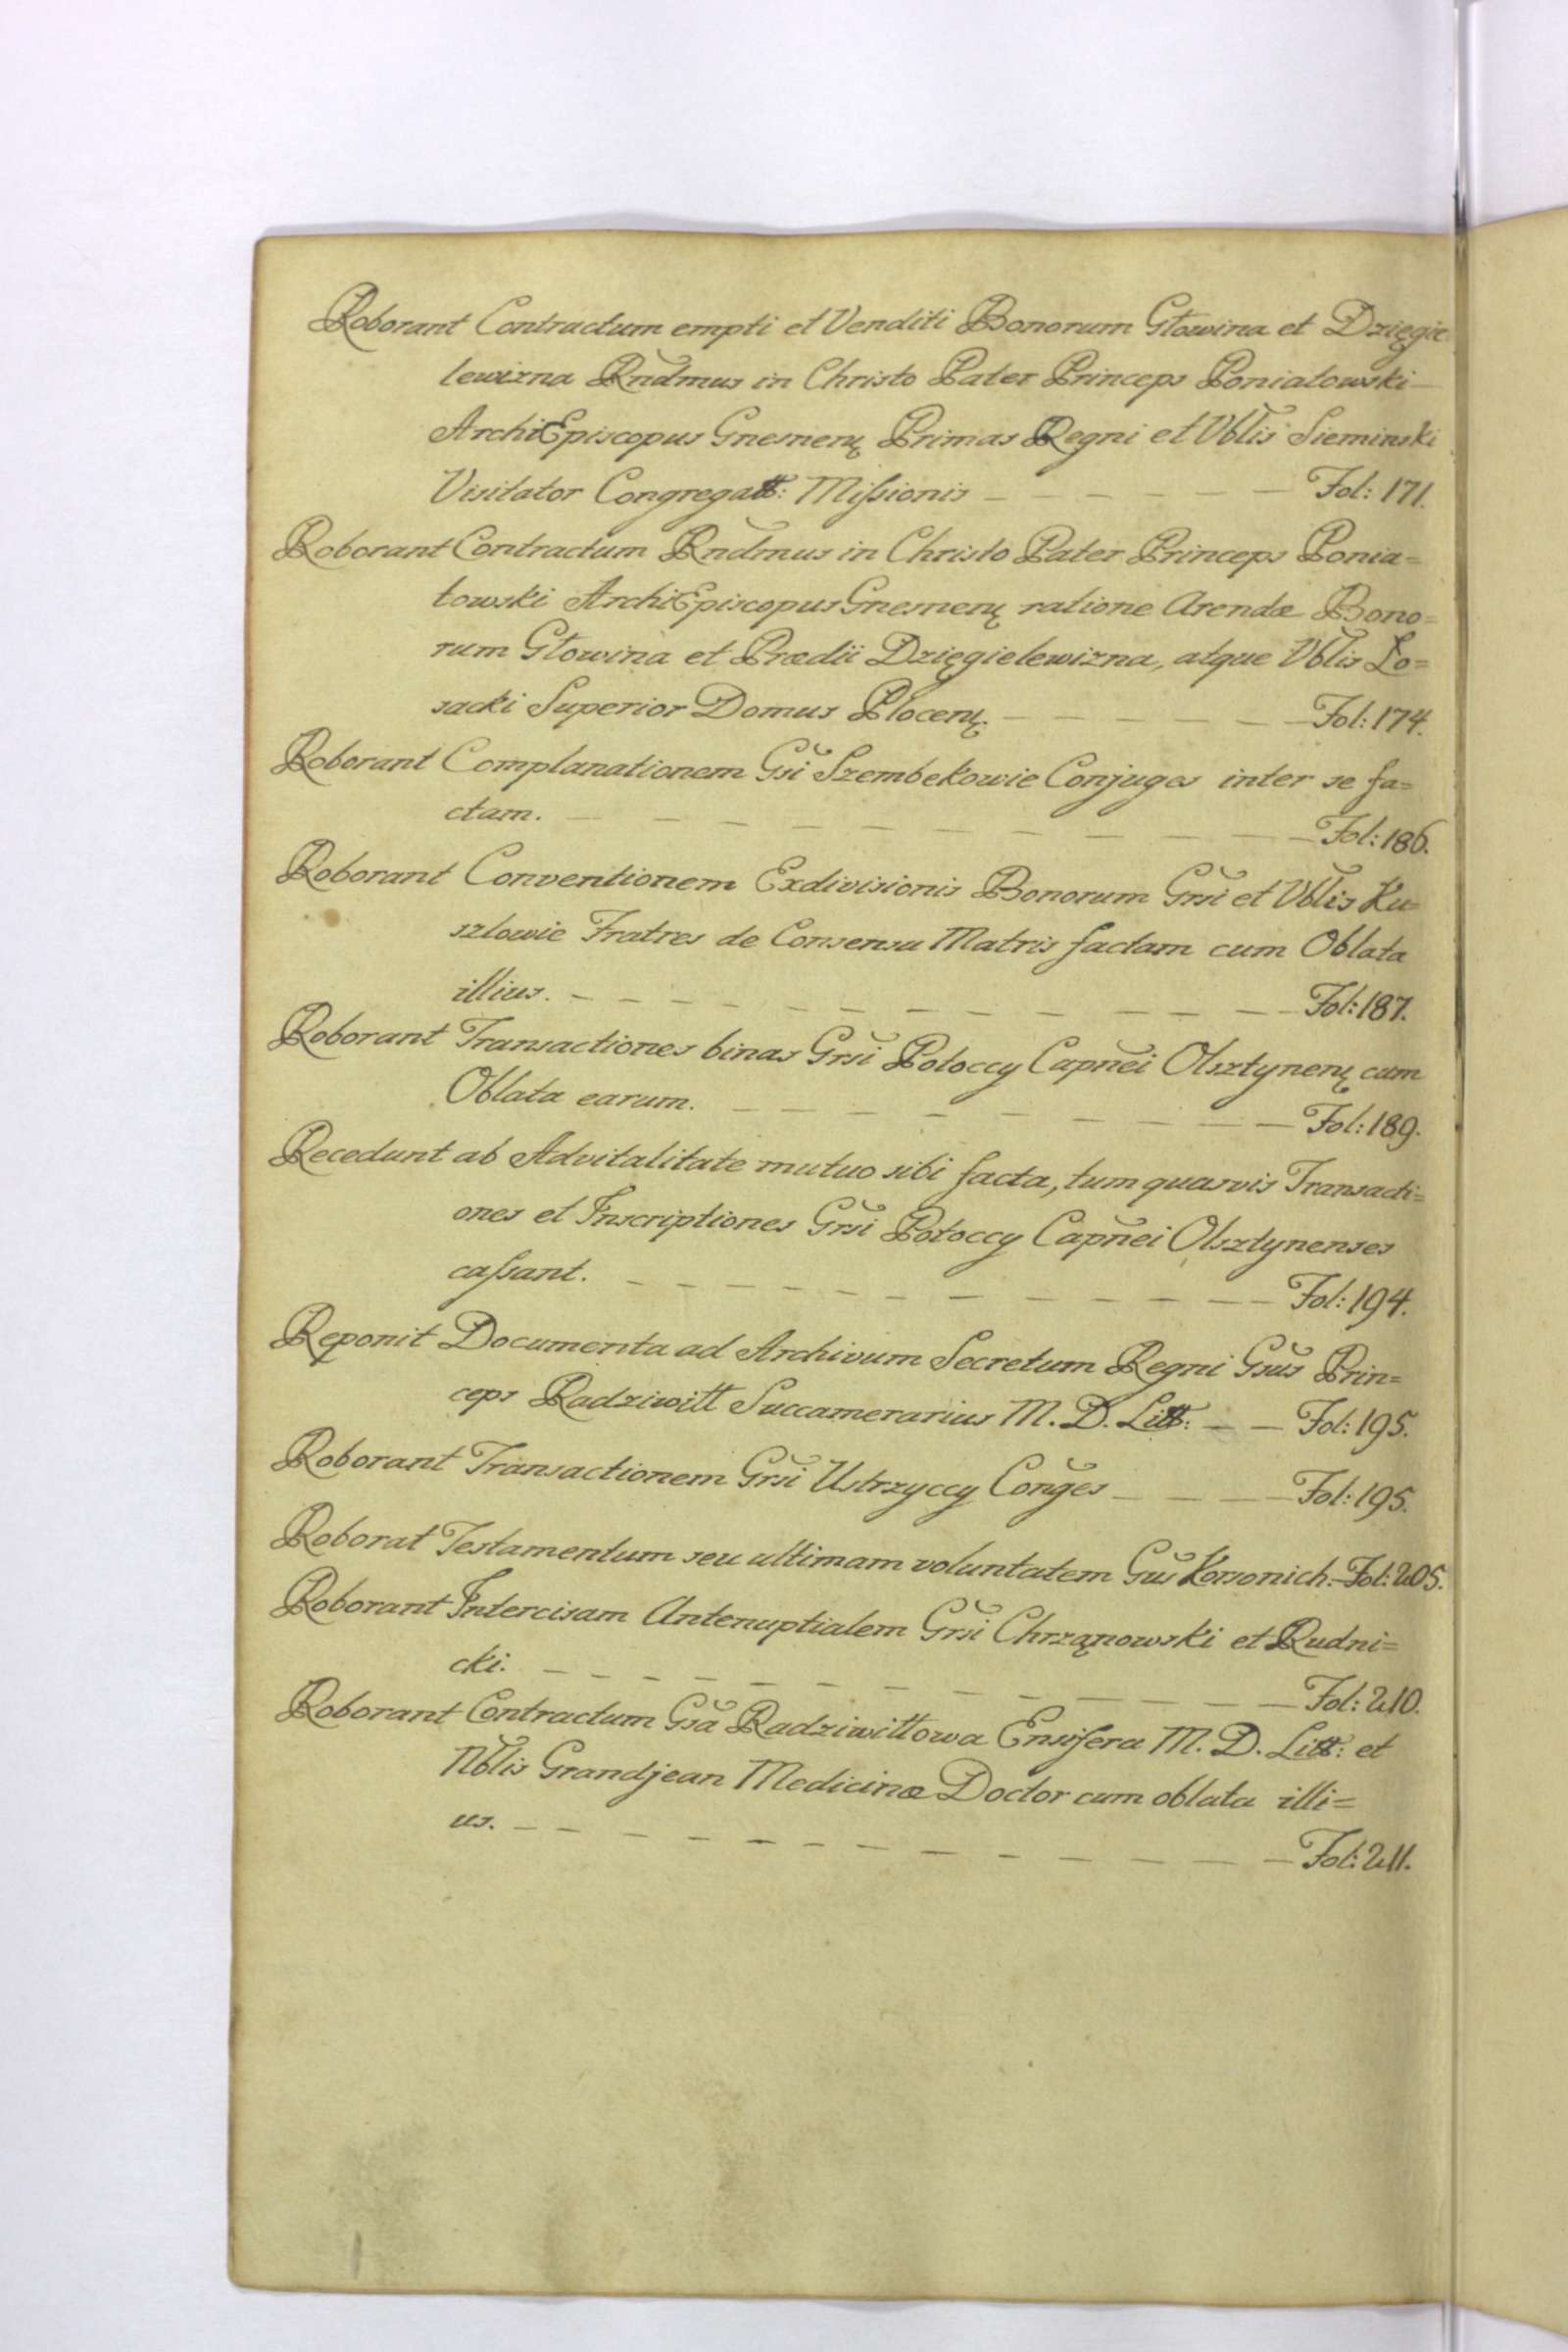 Roborant Contractum empti et Venditi Bonorum Głowina et Dzięgie
lewizna Rndmus in Christo Pater Princeps Poniatowski —
ArchiEpiscopus Gnesnenę Primas Regni et Vblis Sieminski
Visitator Congregatt: Mißionis — — — — — Fol: 171.
Roborant Contractum Rndmus in Christo Pater Princeps Ponia=
towski ArchiEpiscopus Gnesnenę ratione Arendæ Bono=
rum Głowina et Prædii Dzięgielewizna, atque Vblis Ło=
sacki Superior Domus Plocenę. — — — — — Fol: 174.
Roborant Complanationem Gsi Szembekowie Conjuges inter se fa=
ctam. — — — — — — — — Fol: 186.
Roborant Conventionem Exdivisionis Bonorum Grsi et Vblis Ku=
szlowie Fratres de Consensu Matris factam cum Oblata
illius. — — — — — — — — Fol: 187.
Roborant Transactiones binas Grsi Potoccy Capnei Olsztynenę cum
Oblata earum. — — — — — — — Fol: 189.
Recedunt ab Advitalitate mutuo sibi facta, tum quasvis Transacti=
ones et Inscriptiones Grsi Potoccy Capnei Olsztynenses
caßant. — — — — — — — — Fol: 194.
Reponit Documenta ad Archivum Secretum Regni Gsus Prin=
ceps Radziwiłł Succamerarius M. D. Litt: — — Fol: 195.
Roborant Transactionem Grsi Ustrzyccy Conges — — — Fol: 195.
Roborat Testamentum seu ultimam voluntatem Gus Korsonich. Fol: 205.
Roborant Intercisam Antenuptialem Grsi Chrząnowski et Rudni=
cki. — — — — — — — — — Fol: 210.
Roborant Contractum Gsa Radziwiłłowa Ensifera M. D. Litt: et
Nblis Grandjean Medicinæ Doctor cum oblata illi=
us. — — — — — — — — — Fol: 211.